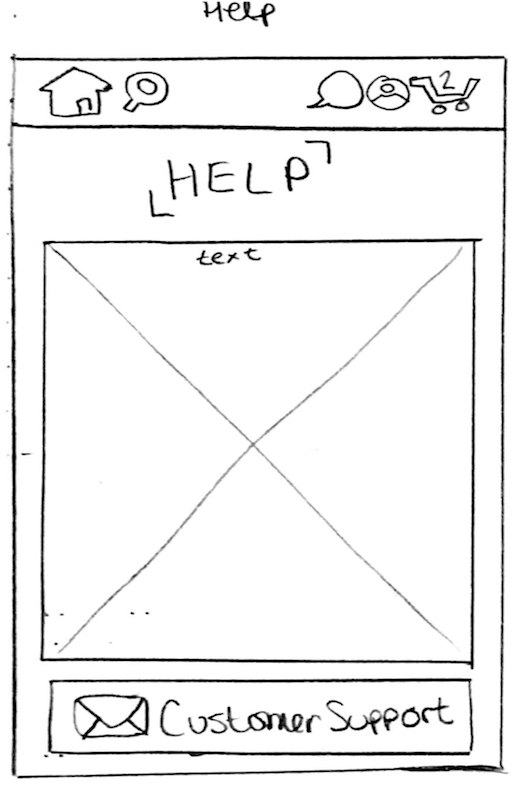 Help
2
HELP
text
Customer Support